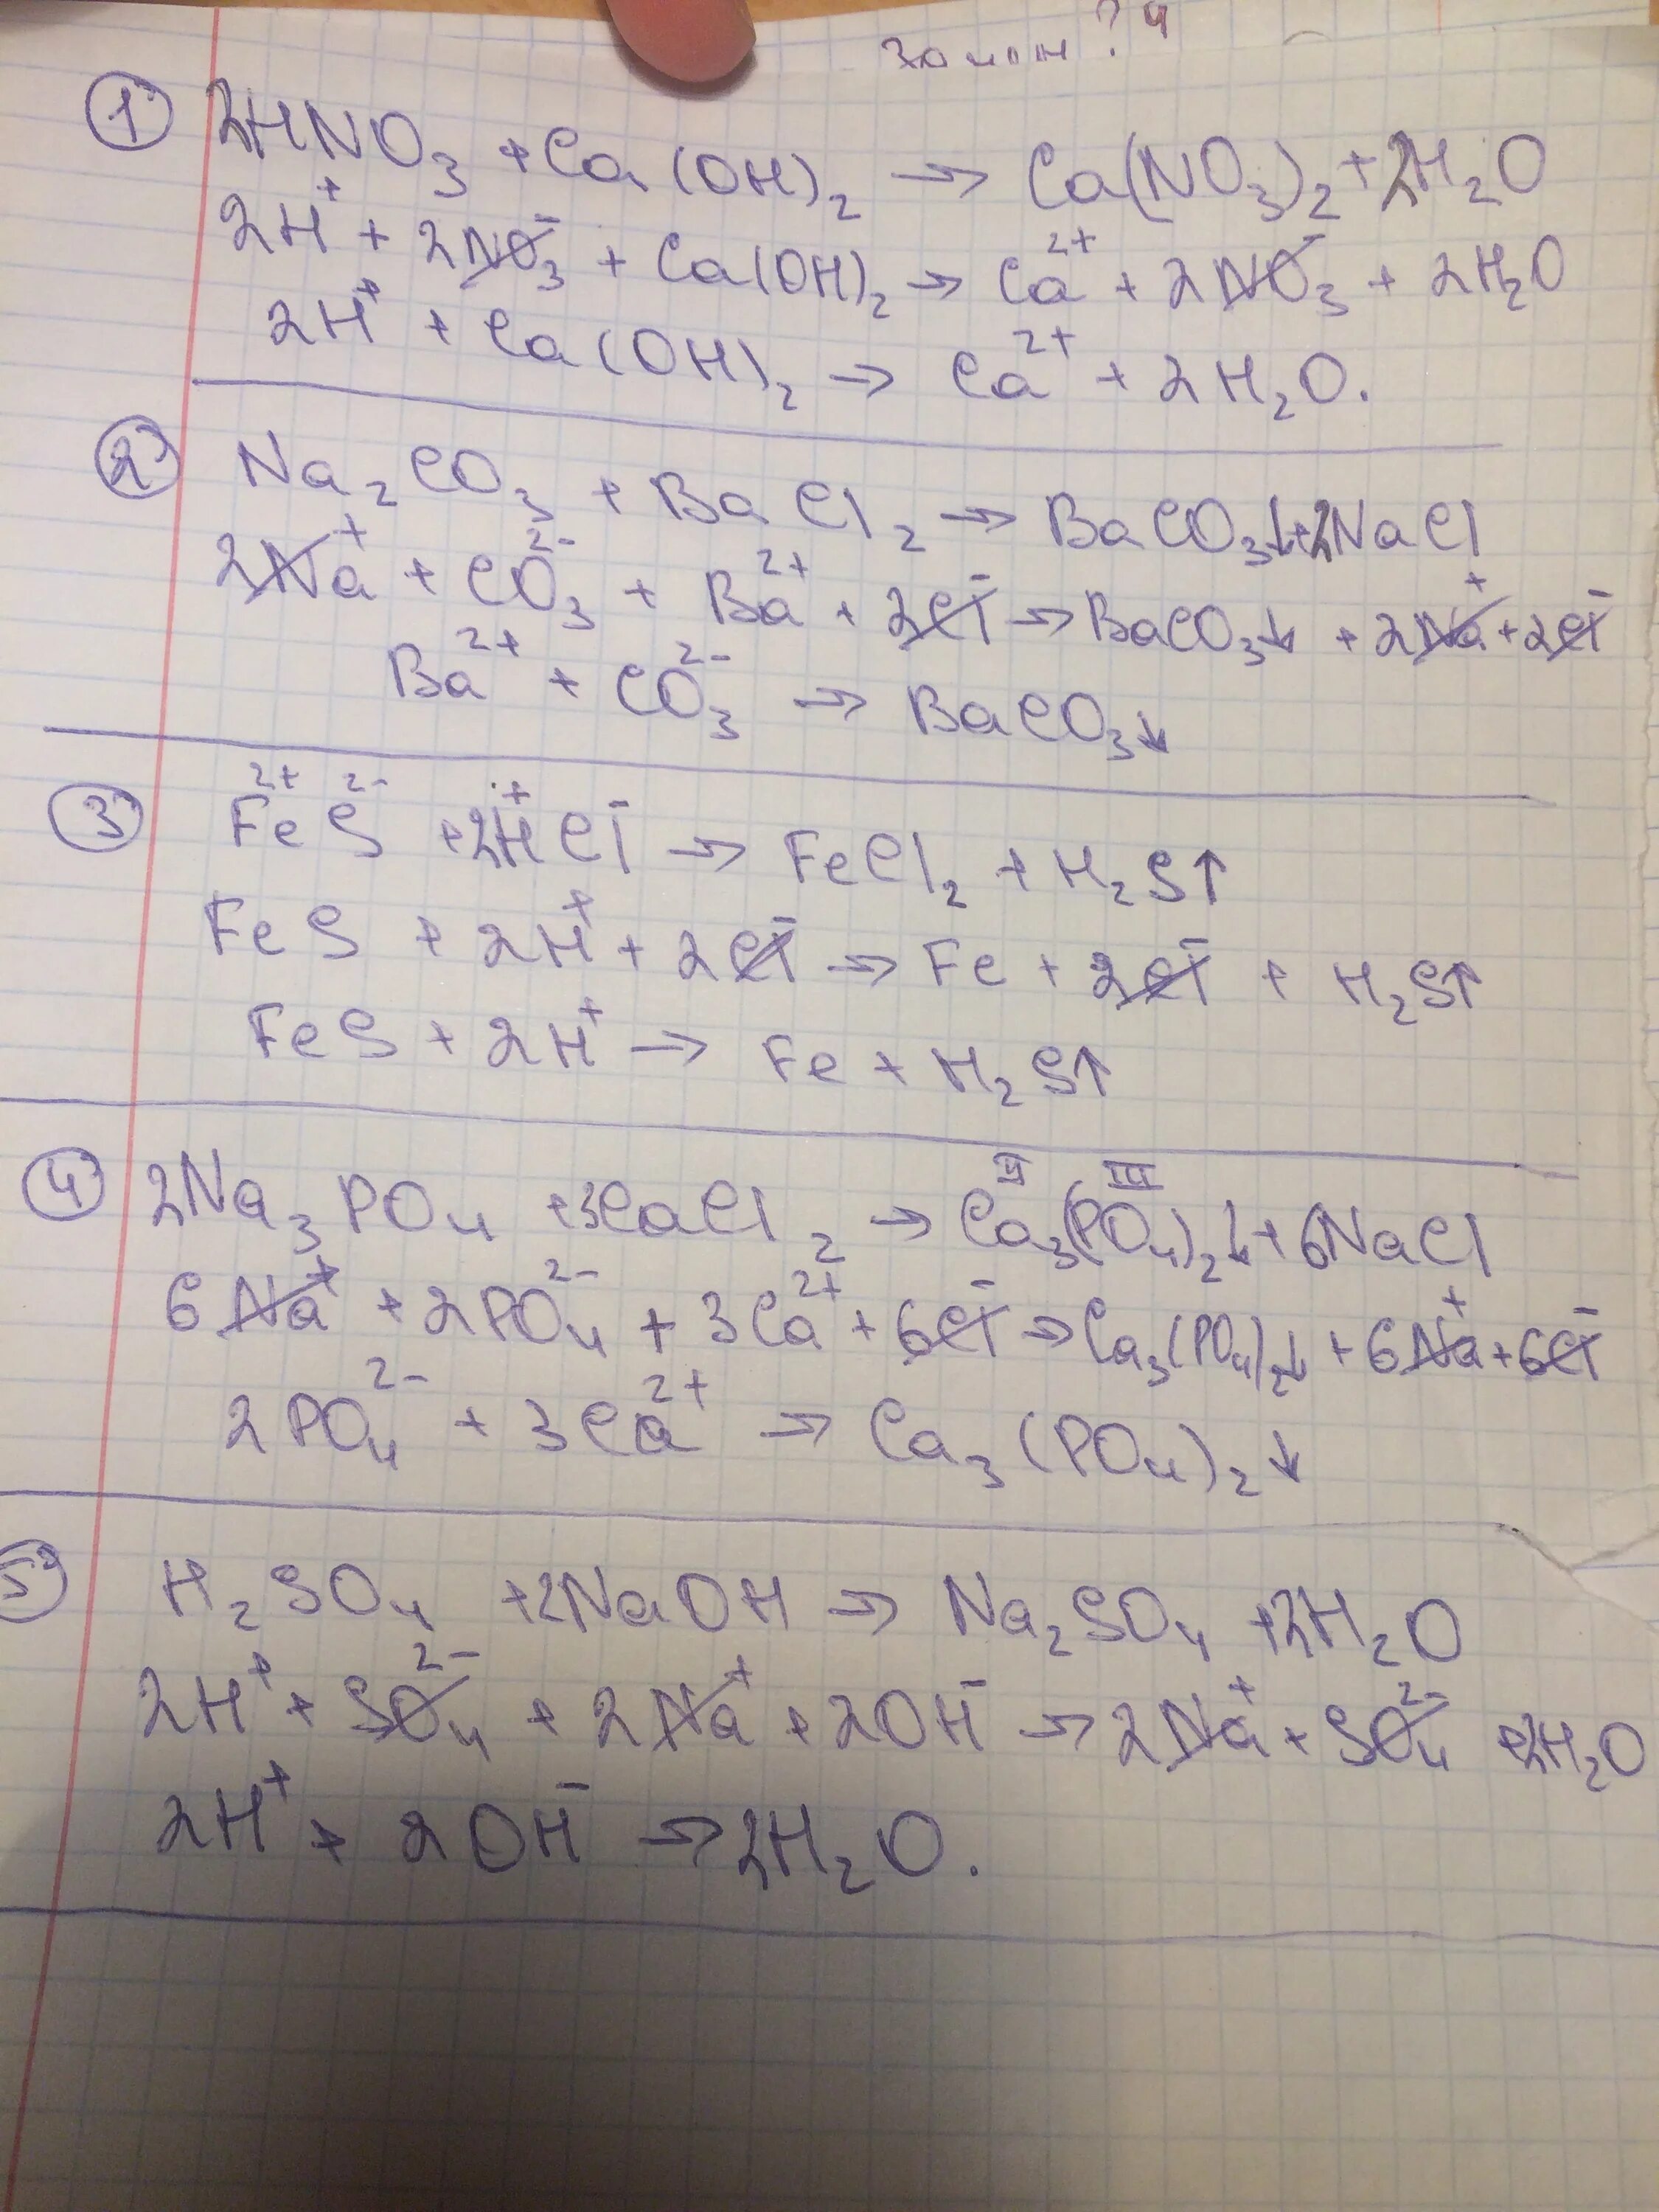 ? 4
① 2HNO₃ + Ca(OH)₂ → Ca(NO₃)₂ + 2H₂O
2H⁺ + 2NO₃⁻ + Ca(OH)₂ → Ca²⁺ + 2NO₃⁻ + 2H₂O
2H⁺ + Ca(OH)₂ → Ca²⁺ + 2H₂O.
② Na₂CO₃ + BaCl₂ → BaCO₃↓ + 2NaCl
2Na⁺ + CO₃²⁻ + Ba²⁺ + 2Cl⁻ → BaCO₃↓ + 2Na⁺ + 2Cl⁻
Ba²⁺ + CO₃²⁻ → BaCO₃↓
③ Fe²⁺S²⁻ + 2H⁺Cl⁻ → FeCl₂ + H₂S↑
FeS + 2H⁺ + 2Cl⁻ → Fe + 2Cl⁻ + H₂S↑
FeS + 2H⁺ → Fe + H₂S↑
II III
④ 2Na₃PO₄ + 3CaCl₂ → Ca₃(PO₄)₂↓ + 6NaCl
6Na⁺ + 2PO₄²⁻ + 3Ca²⁺ + 6Cl⁻ → Ca₃(PO₄)₂↓ + 6Na⁺ + 6Cl⁻
2PO₄²⁻ + 3Ca²⁺ → Ca₃(PO₄)₂↓
⑤ H₂SO₄ + 2NaOH → Na₂SO₄ + 2H₂O
2H⁺ + SO₄²⁻ + 2Na⁺ + 2OH⁻ → 2Na⁺ + SO₄²⁻ + 2H₂O
2H⁺ + 2OH⁻ → 2H₂O.